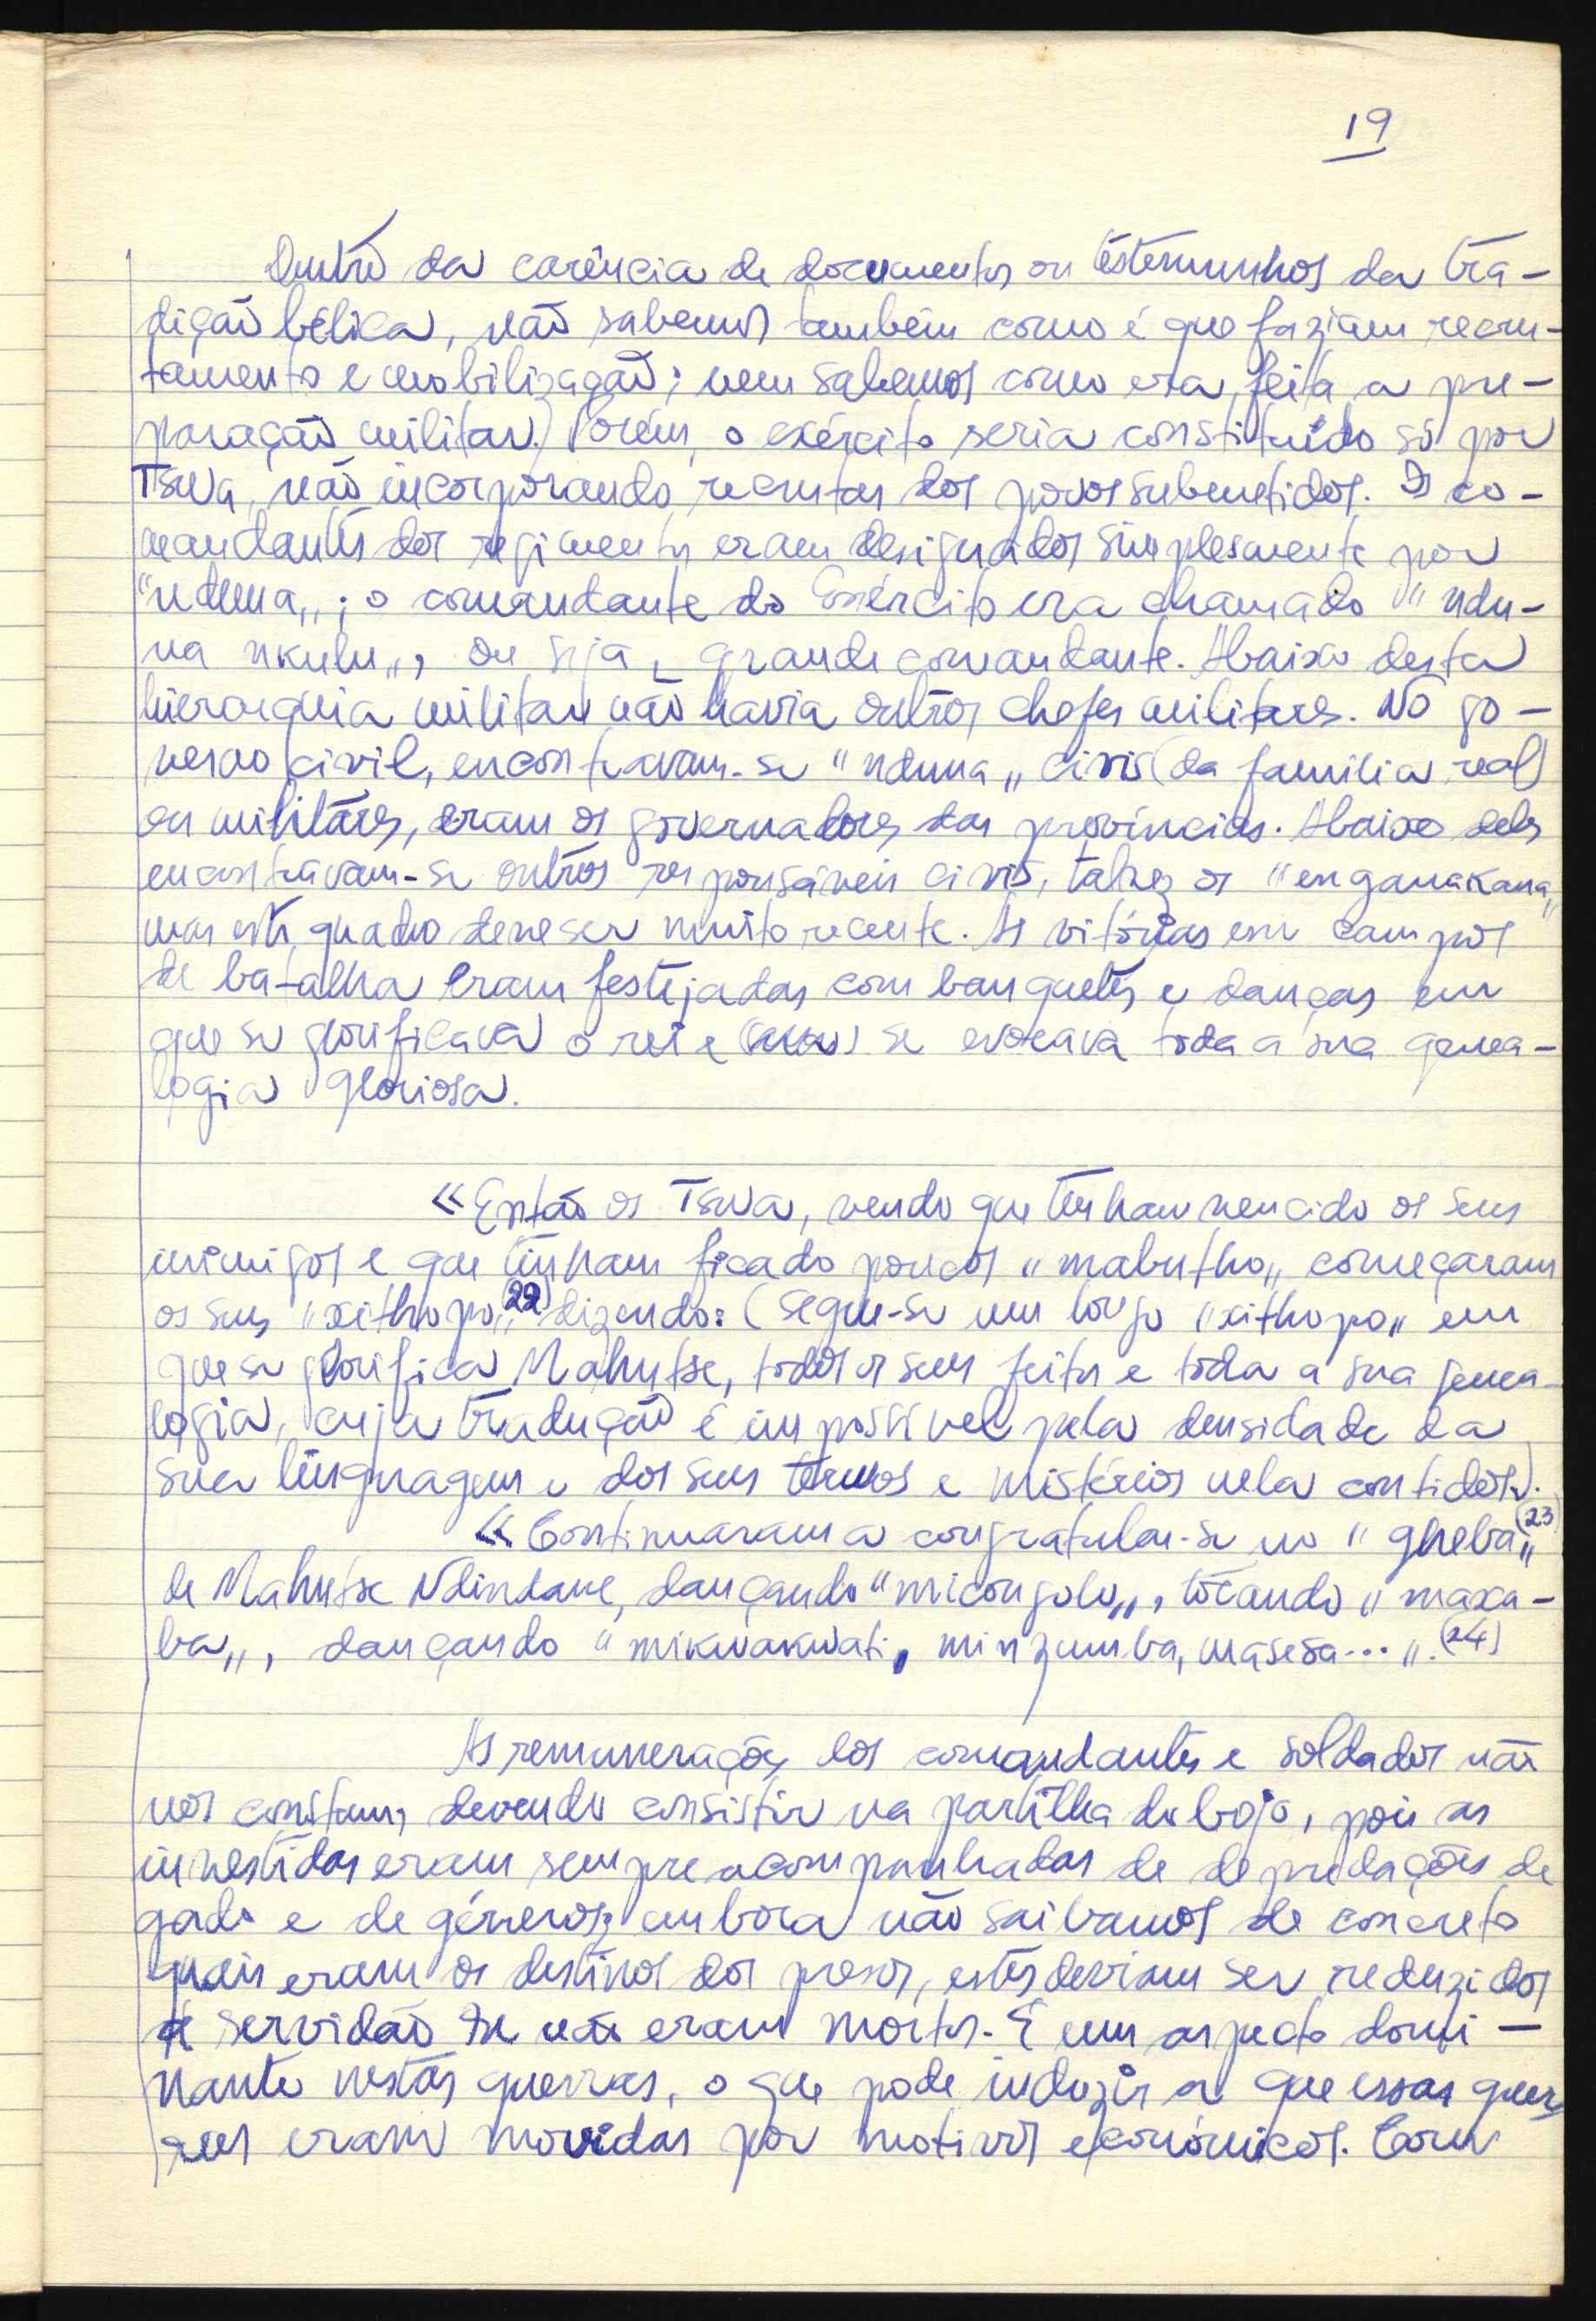 19
Dentro da carência de documentos ou testemunhos da tra-
dição bélica, não sabemos também como é que faziam recru-
tamento e mobilização; nem sabemos como era feita a pre-
paração militar. Porém, o exército seria constituído só por
Tswa, não incorporando recrutas dos povos submetidos. Os co-
mandantes dos regimentos eram designados simplesmente por
"nduna"; o comandante do Exército era chamado "ndu-
na nkulu", ou seja, grande comandante. Abaixo desta
hierarquia militar não havia outros chefes militares. No go-
verno civil, encontravam-se "nduna" civis (da família real)
ou militares, eram os governadores das províncias. Abaixo deles
encontravam-se outros responsáveis civis, talvez os "enganakana"
mas este quadro deve ser muito recente. As vitórias em campos
de batalha eram festejadas com banquetes e danças em
que se glorificava o rei e se evocava toda a sua genea-
logia gloriosa.
«Então os Tswa, vendo que tinham vencido os seus
inimigos e que tinham ficado poucos "mabutho" começaram
os seus "xithopo" (22) dizendo: (Segue-se um longo "xithopo" em
que se glorifica Mahutse, todos os seus feitos e toda a sua genea-
logia, cuja tradução é impossível pela densidade da
sua linguagem e dos seus termos e mistérios nela contidos).
«Continuaram a congratular-se no "gheba" (23)
de Mahutse Ndindane, dançando "micongolo", tocando "maxa-
ba", dançando "mikwakwati, minzumba, masesa...". (24)
As remunerações dos comandantes e soldados não
nos constam, devendo consistir na partilha do bojo, pois as
investidas eram sempre acompanhadas de depredações de
gado e de géneros, embora não saibamos de concreto
quais eram os destinos dos presos, estes deviam ser reduzidos
à servidão se não eram mortos. É um aspecto domi-
nante nestas guerras, o que pode induzir a que essas guer-
ras eram movidas por motivos económicos. Com